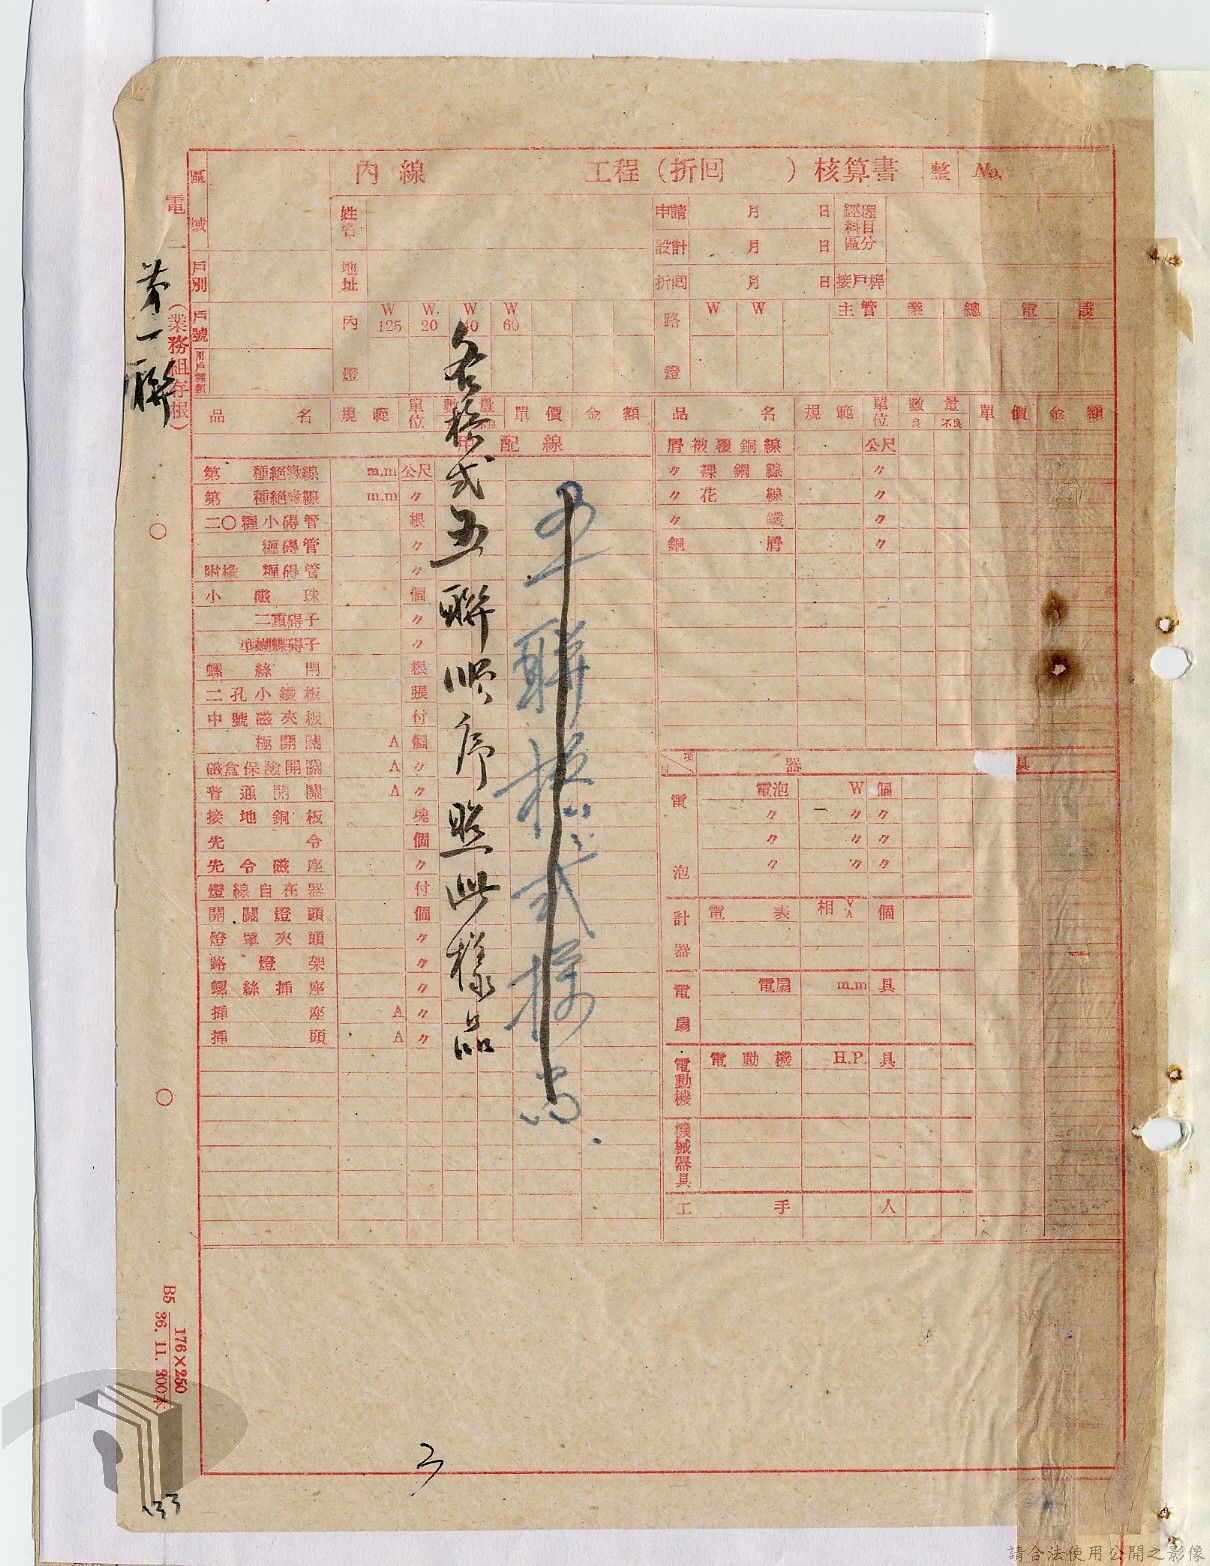 內線 工程（折回 ）核算書 整 No.
區域
姓名
申請 月 日
經理科目區分
設計 月 日
戶別
地址
折回 月 日 接戶桿
戶號
內燈 W 125 W 20 W 40 W 60
路燈 W W
主管 業 總 電 設
品名 規範 單位 數量 單價 金額 品名 規範 單位 數量 良 不良 單價 金額
配線
第 種絕緣線 m.m 公尺
第 種絕緣線 m.m 〃
二〇糎小碍管 根
糎碍管 〃
糎碍管 〃
小磁珠 個
二重碍子 〃
碍子 〃
螺絲門 根
二孔小鐵板 張
中號磁夾板 付
極開關 A 個
磁盒保險開關 A 〃
普通開關 A 〃
接地銅板 塊
先令 個
先令磁座 〃
燈線自在器 付
開關燈頭 個
燈罩夾頭 〃
路燈架 〃
螺絲插座 〃
插座 A 〃
插頭 A 〃
屑被覆銅線 公尺
〃裸銅線 〃
〃花線 〃
〃 鐵 〃
銅屑 〃
器具
電泡 電泡 W 個
〃 〃 〃
〃 〃 〃
〃 〃 〃
計器 電表 相 V A 個
電扇 電扇 m.m 具
電動機 電動機 H.P. 具
機械器具
工手 人
電一
（業務組存根）
第一聯
各格式五聯順序照此樣品
五聯格式樣
B5 176×250
36. 11. 200本
3
133
請合法使用公開之影像